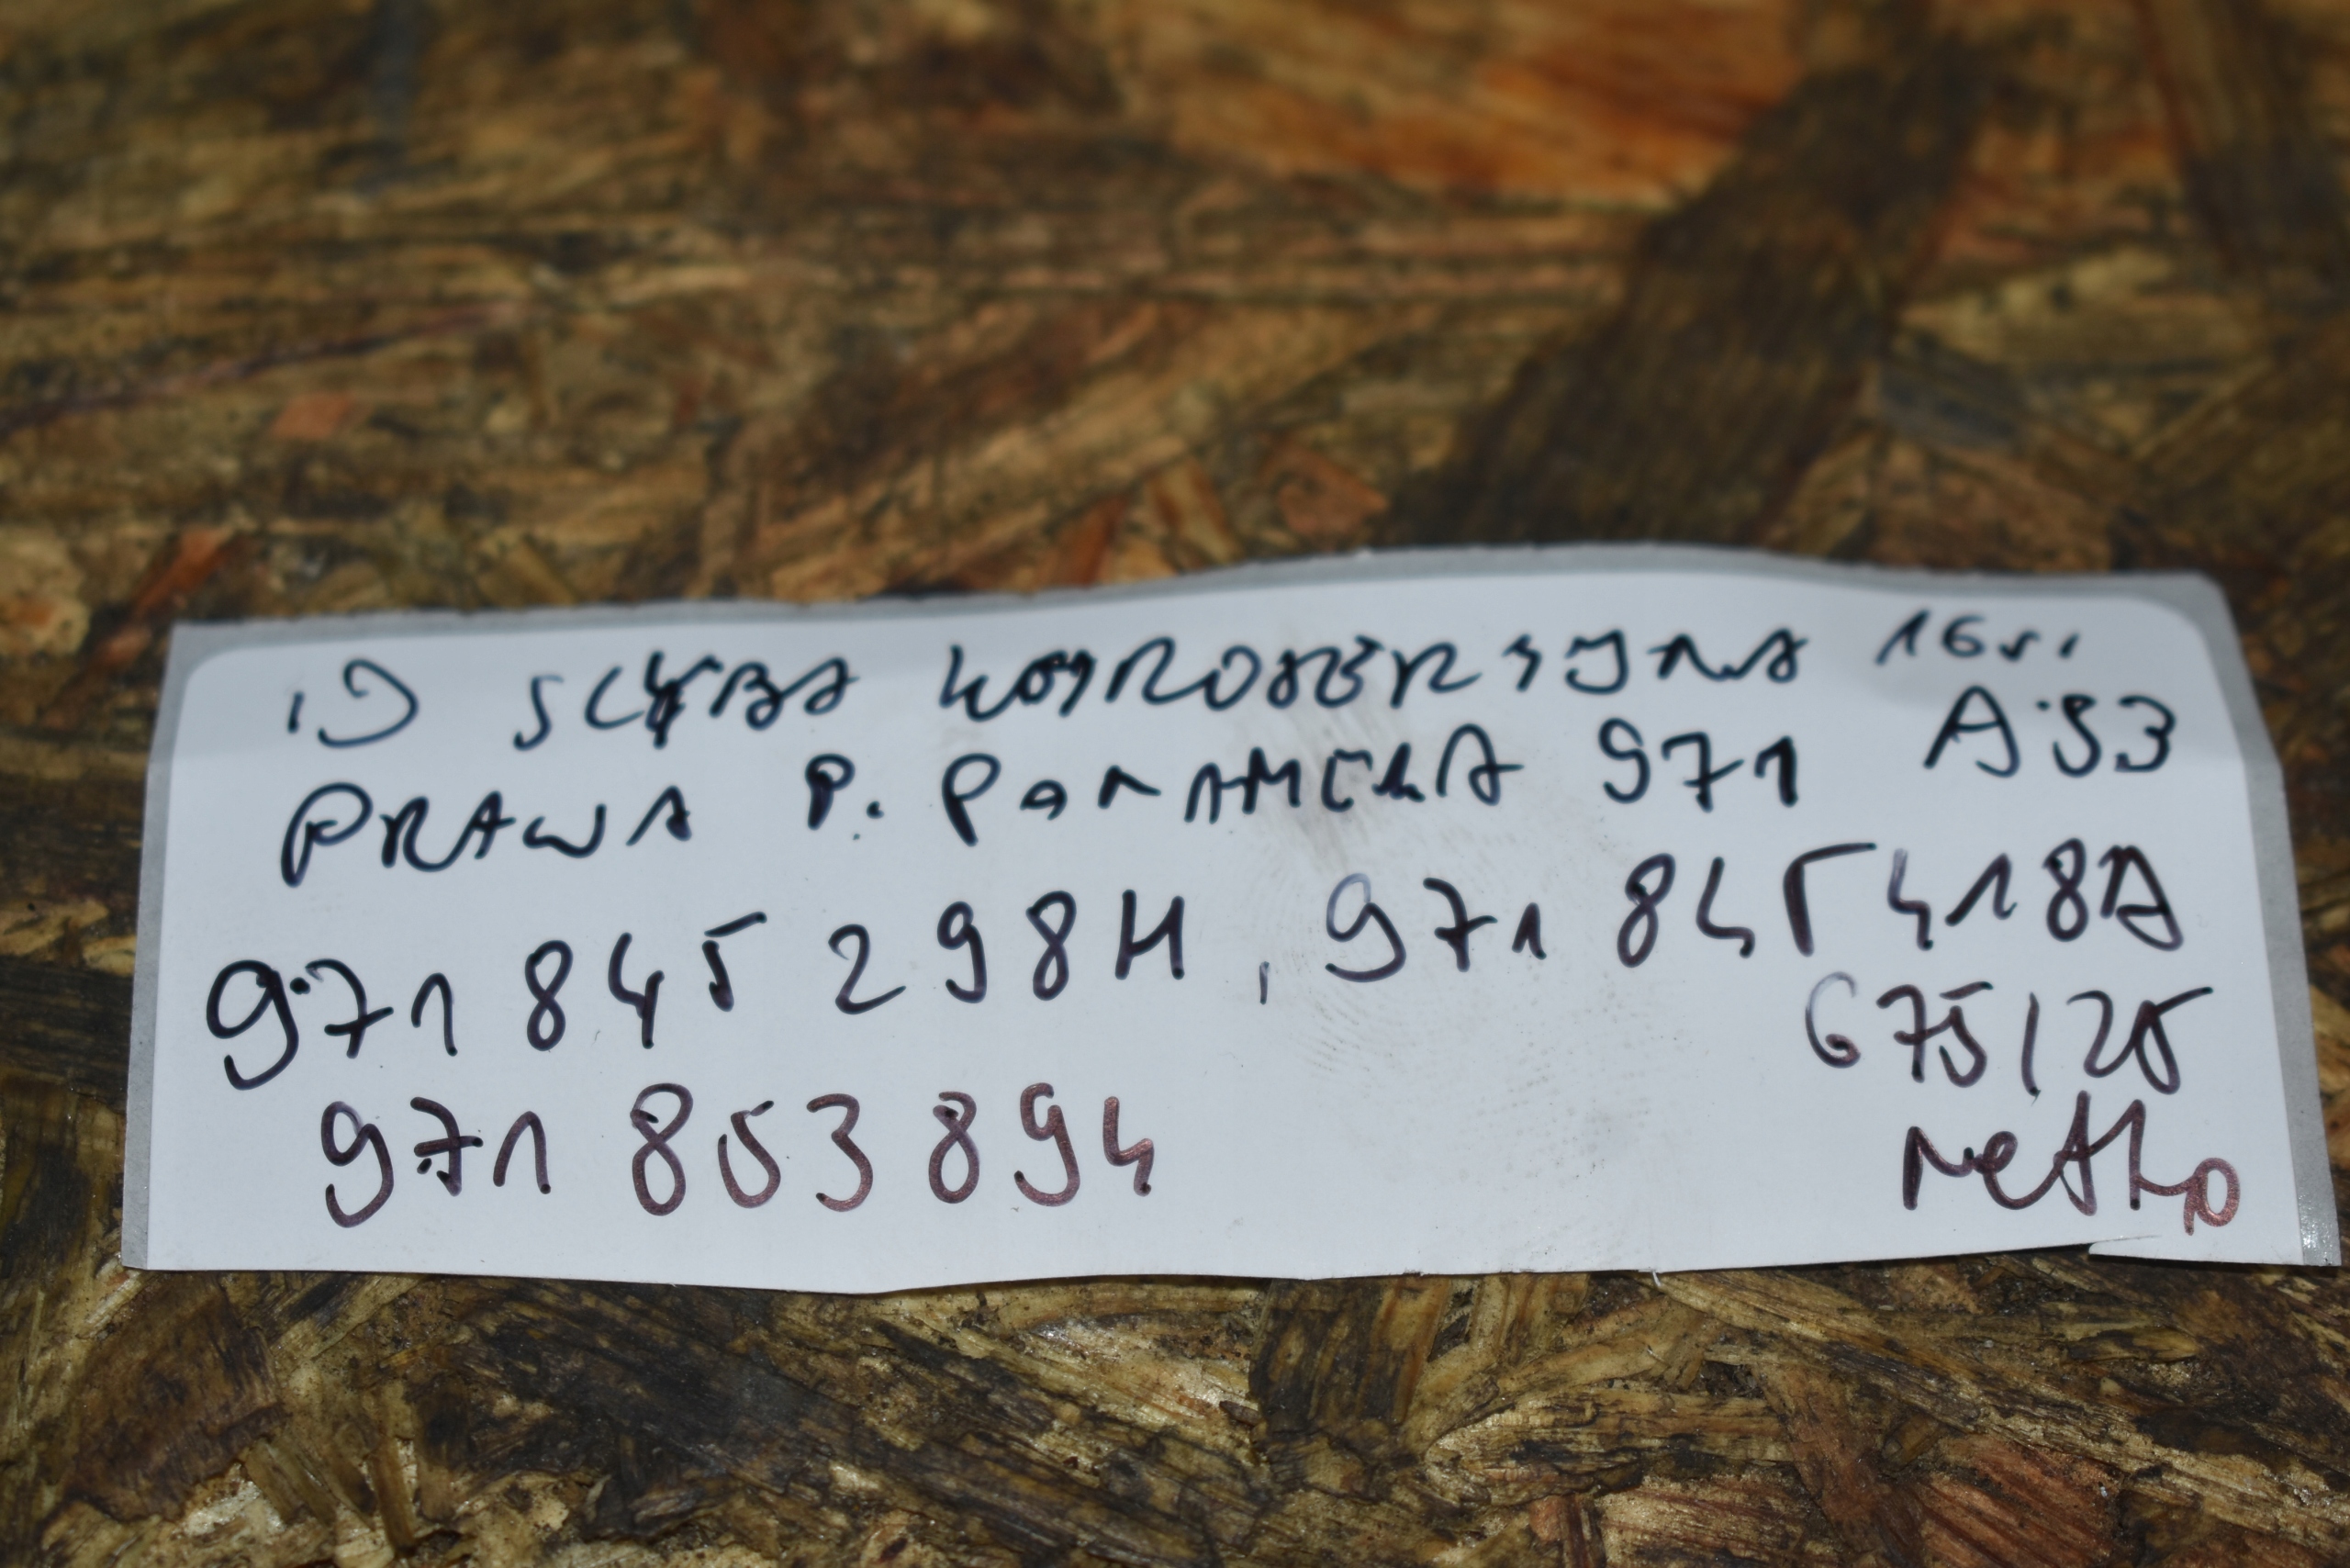 SZYBA KAROSERYJNA 16r.
PRAWA P. PANAMERA 971 A93
971 845 298H, 971 845 418A
675/25
971 853 894 netto